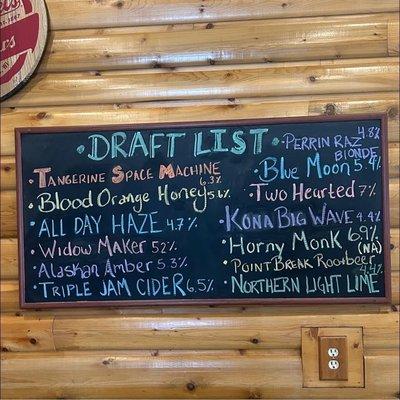 • DRAFT LIST
• TANGERINE SPACE MACHINE
6.3%
• BLOOD ORANGE HONEY 5.1%
• ALL DAY HAZE 4.7%
• WIDOW MAKER 5.2%
• ALASKAN AMBER 5.3%
• TRIPLE JAM CIDER 6.5%
• PERRIN RAZ 4.8%
BLONDE
• BLUE MOON 5.4%
• TWO HEARTED 7%
• KONA BIG WAVE 4.4%
• HORNY MONK 6.9%
• POINT BREAK ROOTBEER (NA)
• NORTHERN LIGHT LIME 4.4%